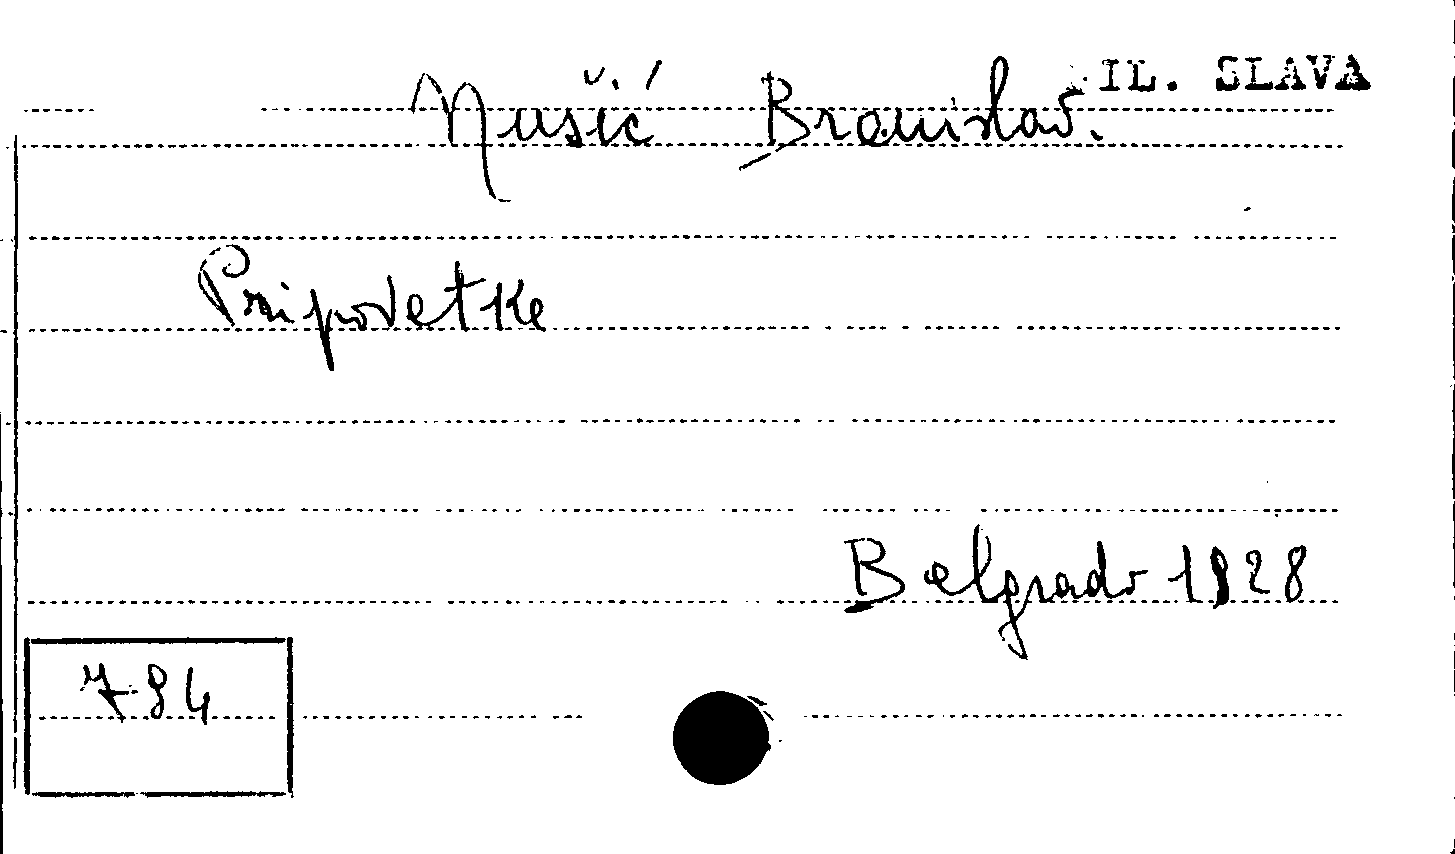 IL. SLAVA
Nušić Branislav.
Pripovetke
Belgrado 1928
784